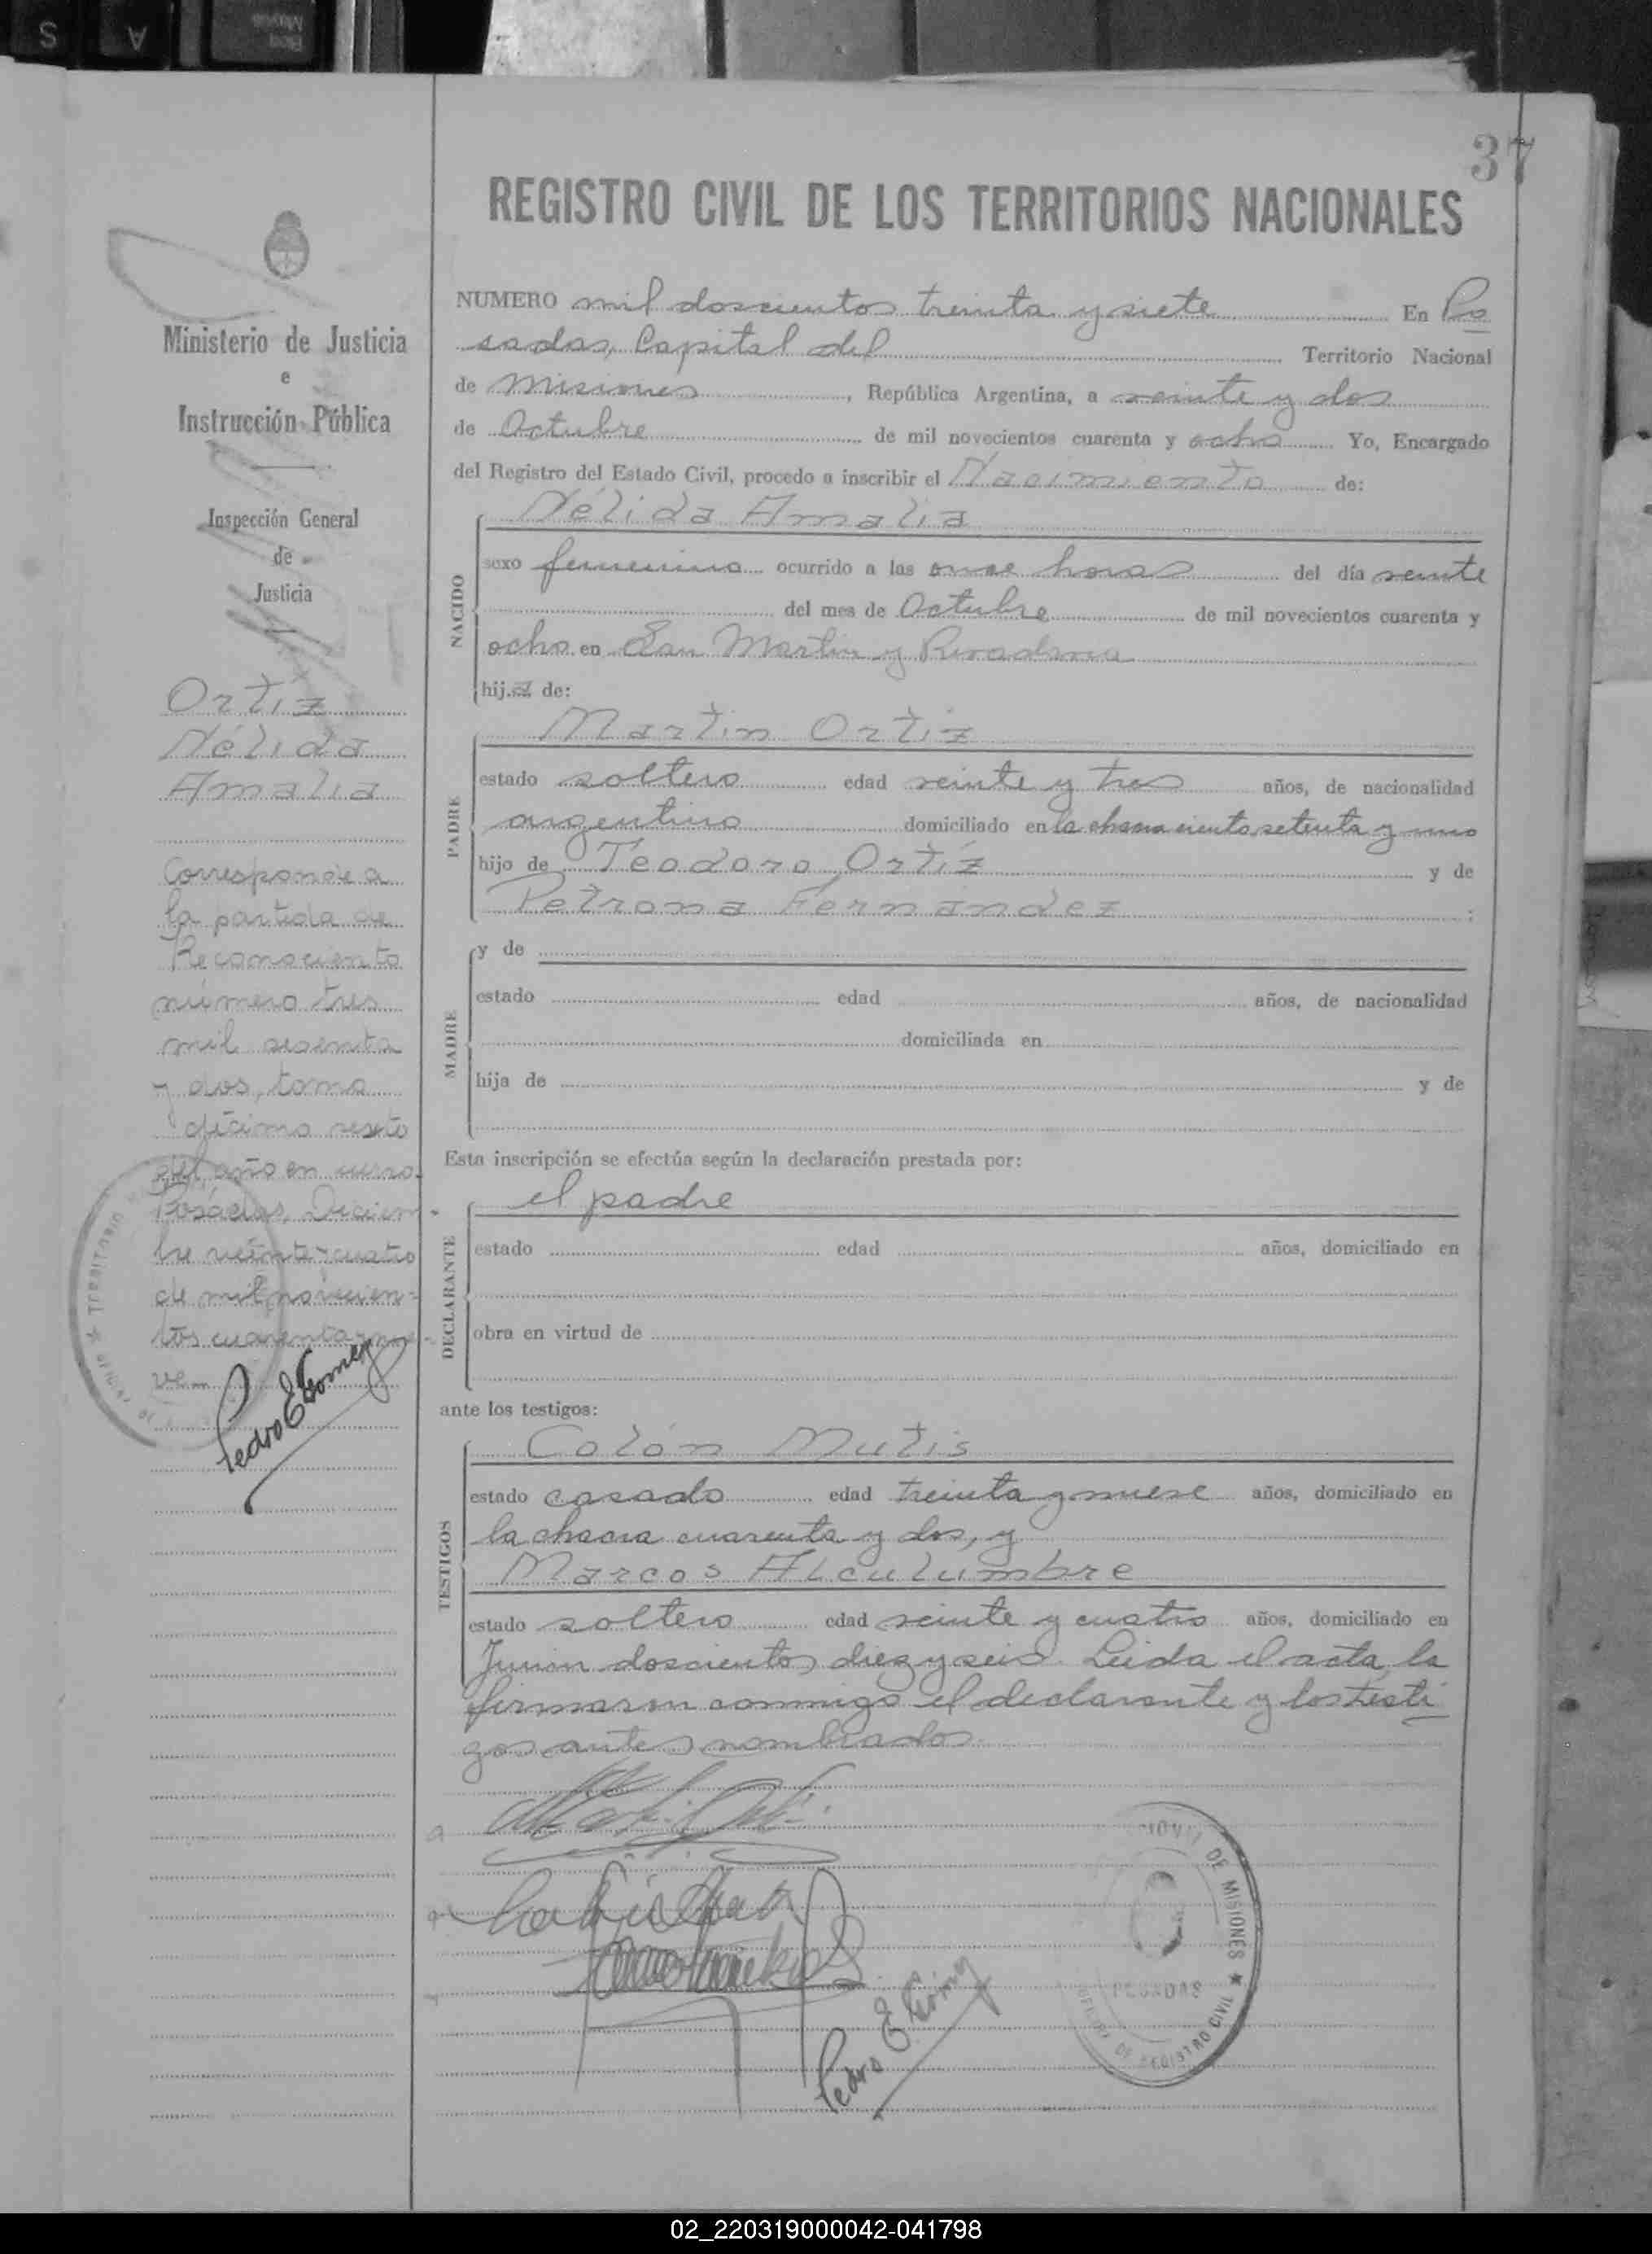 37
REGISTRO CIVIL DE LOS TERRITORIOS NACIONALES
Ministerio de Justicia
e
Instrucción Pública
Inspección General
de
Justicia
Ortiz
Nélida
Amalia
Corresponde a
la partida de
Reconociento
número tres
mil sesenta
y dos, tomo
décimo sexto
del año en curso.
Posadas, Diciem-
bre veinte y cuatro
de mil novecien-
tos cuarenta y nue-
ve
Pedro E Gomez
NUMERO mil doscientos treinta y siete En Po
sadas, Capital del Territorio Nacional
de Misiones, República Argentina, a veinte y dos
de Octubre de mil novecientos cuarenta y ocho Yo, Encargado
del Registro del Estado Civil, procedo a inscribir el Nacimiento de:
NACIDO
Nélida Amalia
sexo femenino ocurrido a las once horas del día veinte
del mes de Octubre de mil novecientos cuarenta y
ocho en San Martin y Rivadavia
hij.a de:
PADRE
Martin Ortiz
estado soltero edad veinte y tres años, de nacionalidad
argentino domiciliado en la chacra ciento setenta y uno
hijo de Teodoro Ortíz y de
Petrona Fernandez :
MADRE
y de
estado edad años, de nacionalidad
domiciliada en
hija de y de
Esta inscripción se efectúa según la declaración prestada por:
DECLARANTE
el padre
estado edad años, domiciliado en
obra en virtud de
ante los testigos:
TESTIGOS
Colón Mutis
estado casado edad treinta y nueve años, domiciliado en
la chacra cuarenta y dos, y
Marcos Alculumbre
estado soltero edad veinte y cuatro años, domiciliado en
Junin doscientos diez y seis. Leida el acta, la
firmaron conmigo el declarante y los testi
gos antes nombrados.
Pedro E Gomez
DE MISIONES ★
POSADAS
REGISTRO CIVIL
02_220319000042-041798